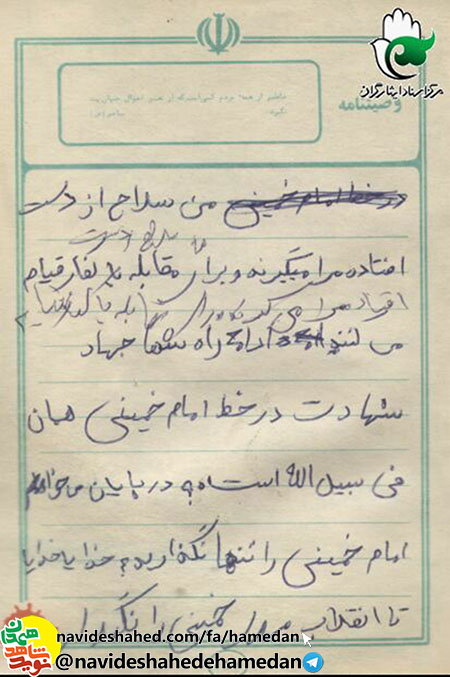 مرکز اسناد ایثارگران
وصیتنامه
در خط امام خمینی من سلاح از دست
افتاده مرا میگیرند و برای مقابله با کفار قیام
می کنند ادامه راه شهدا جهاد
شهادت در خط امام خمینی همان
فی سبیل الله است و در پایان می خواهم
امام خمینی را تنها نگذارید خدایا خدایا
تا انقلاب مهدی خمینی را نگهدار
navideshahed.com/fa/hamedan
نوید شاهد همدان
@navideshahedehamedan